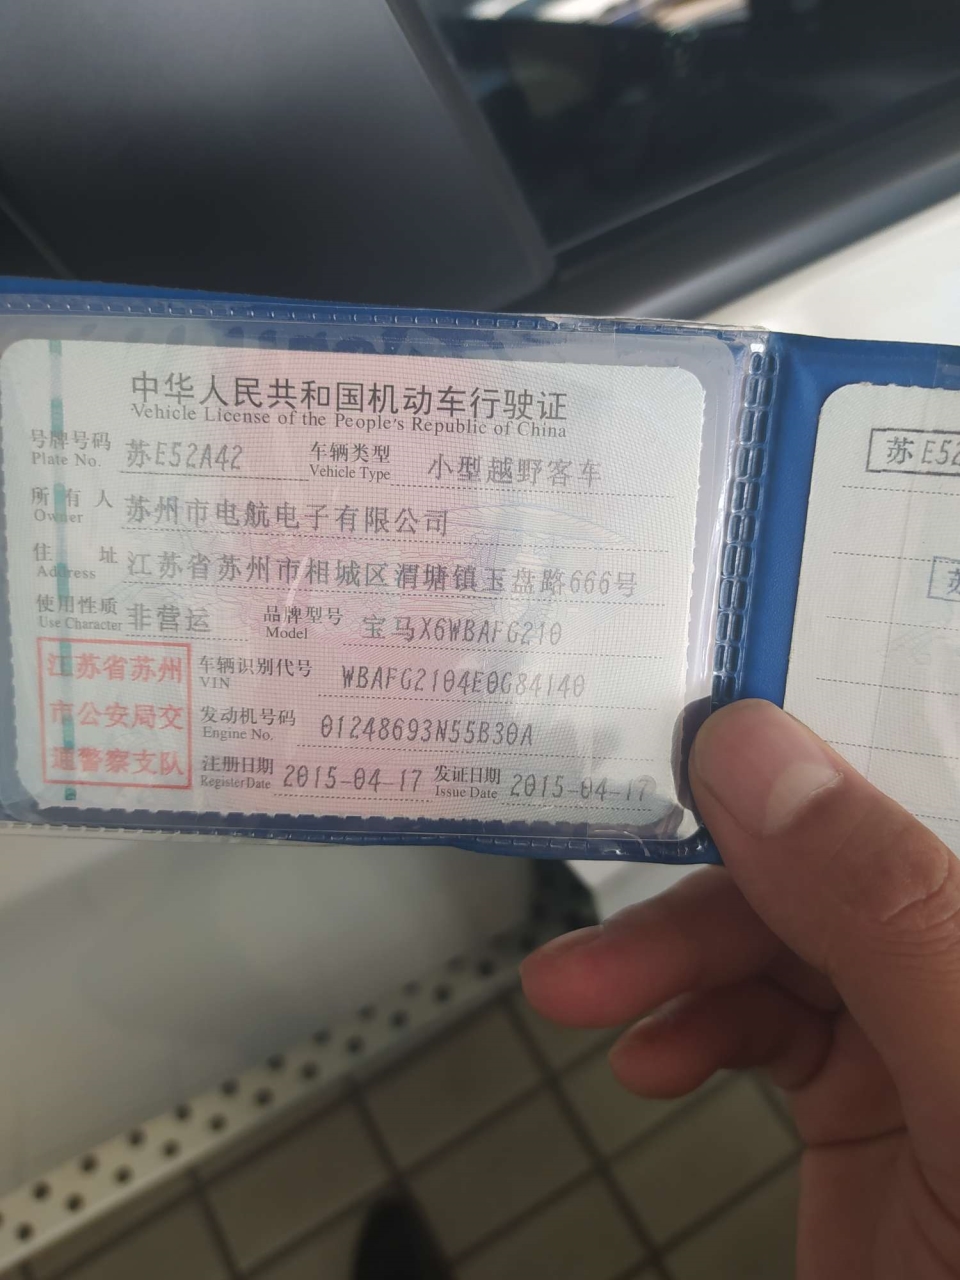 中华人民共和国机动车行驶证
Vehicle License of the People's Republic of China
号牌号码 苏E52A42 车辆类型 小型越野客车
Plate No. Vehicle Type
所有人 苏州市电航电子有限公司
Owner
住址 江苏省苏州市相城区渭塘镇玉盘路666号
Address
使用性质 非营运 品牌型号 宝马X6WBAFG210
Use Character Model
江苏省苏州
市公安局交
通警察支队
车辆识别代号 WBAFG2104E0G84140
VIN
发动机号码 01248693N55B30A
Engine No.
注册日期 2015-04-17 发证日期 2015-04-17
Register Date Issue Date
苏E52
苏